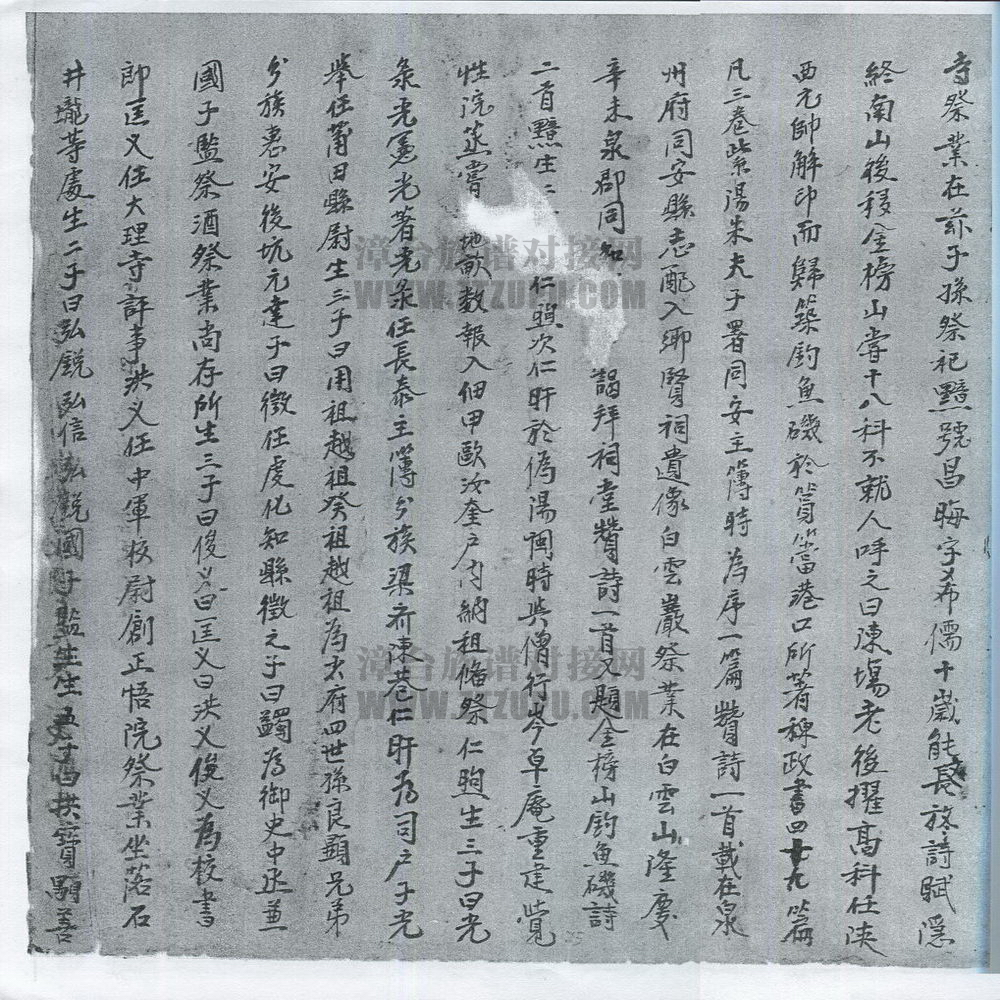 寺祭業在茲子孫祭祀黯號昌晦字希儒十歲能長於詩賦隱
終南山後移金榜山嘗十八科不就人呼之曰陳場老後擢高科任陝
西元帥解印而歸築釣魚磯於篔簹港口所著稗政書四十九篇
凡三卷紫陽朱夫子署同安主簿時為序一篇贊詩一首載在泉
州府同安縣志配入鄉賢祠遺像白雲巖祭業在白雲山隆慶
辛未泉郡同知 謁拜祠堂贊詩一首又題金榜山釣魚磯詩
二首黯生二 仁煦次仁盱於偽湯閩時與僧行岑草庵重建覺
性院蒸嘗 地畝數報入佃甲歐汝奎户內納租脩祭仁煦生三子曰光
彔光憲光著光彔任長泰主簿分族梁齐陳巷仁盱为司户子光
舉任莆田縣尉生三子曰用祖越祖癸祖越祖為太府四世孫良顯兄弟
分族惠安後坑元達子曰徵任虔化知縣徵之子曰躅為御史中丞兼
國子監祭酒祭業尚存所生三子曰俊义曰匡义曰洪义俊义為校書
郎匡义任大理寺評事洪义任中軍校尉創正悟院祭業坐落石
井瓏等處生二子曰弘銳弘信弘銳國子監生生五子曰拱寶嗣善
漳台族谱对接网
WWW.ZTZUPU.COM
漳台族谱对接网
WWW.ZTZUPU.COM